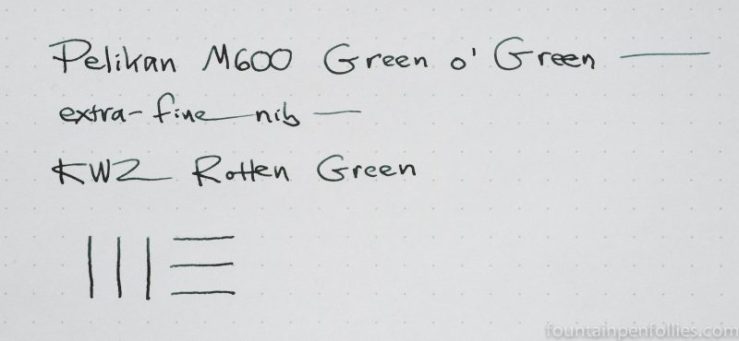 Pelikan M600 Green o' Green —
extra-fine nib —
KWZ Rotten Green
fountainpenfollies.com